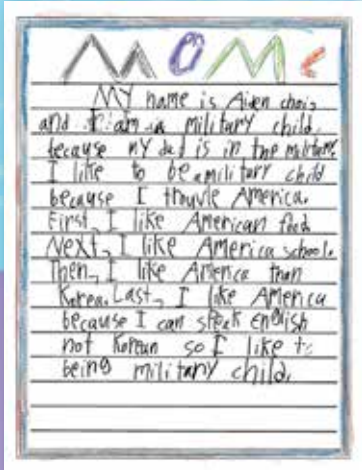 MOMC
MY name is Aiden choi,
and I am a military child.
because my dad is in the military
I like to be a military child
because I travle America.
First, I like American food.
Next, I like America school.
Then, I like America than
Korea. Last, I like America
because I can speak English
not Korean so I like to
being military child.